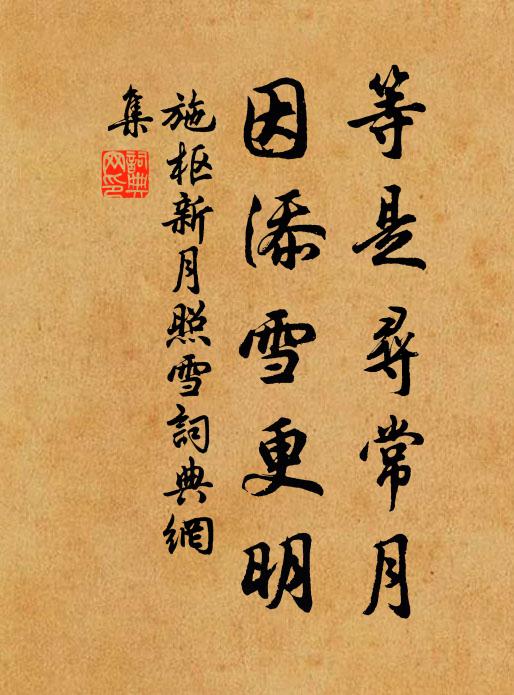 等是尋常月
因添雪更明
施枢新月照雪詞典網
集
詞典
网印